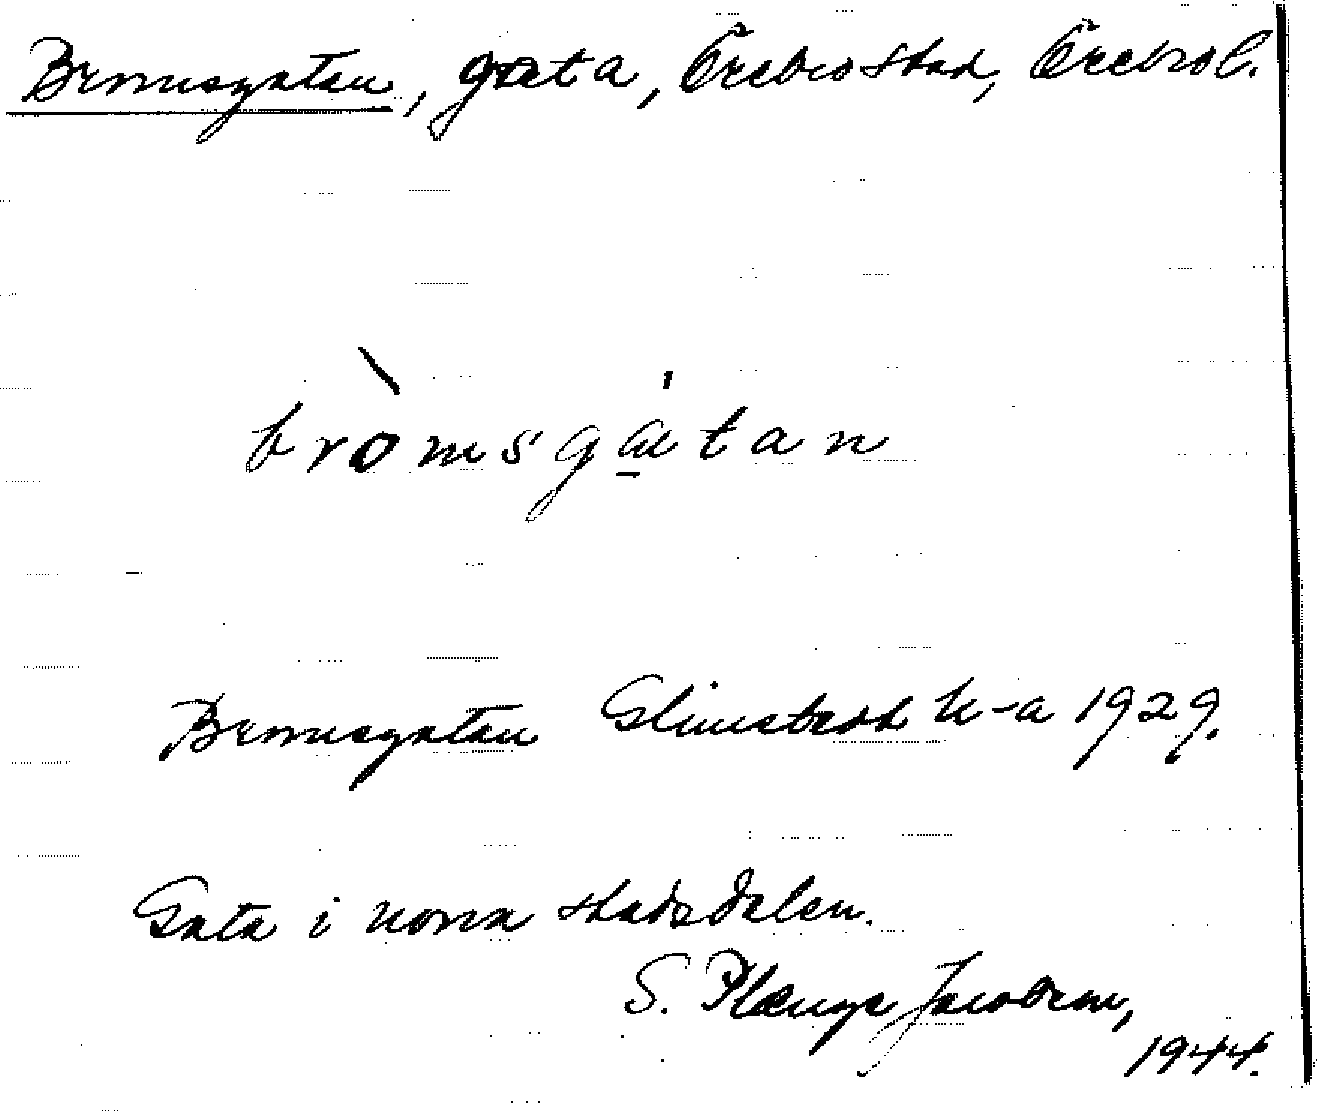 Bromsgatan, gata, Örebro stad, Örebro l.
bròmsgátan
Bromsgatan Glimstedt k-a 1929.
Gata i norra stadsdelen.
S. Plænge Jacobson,
1944.